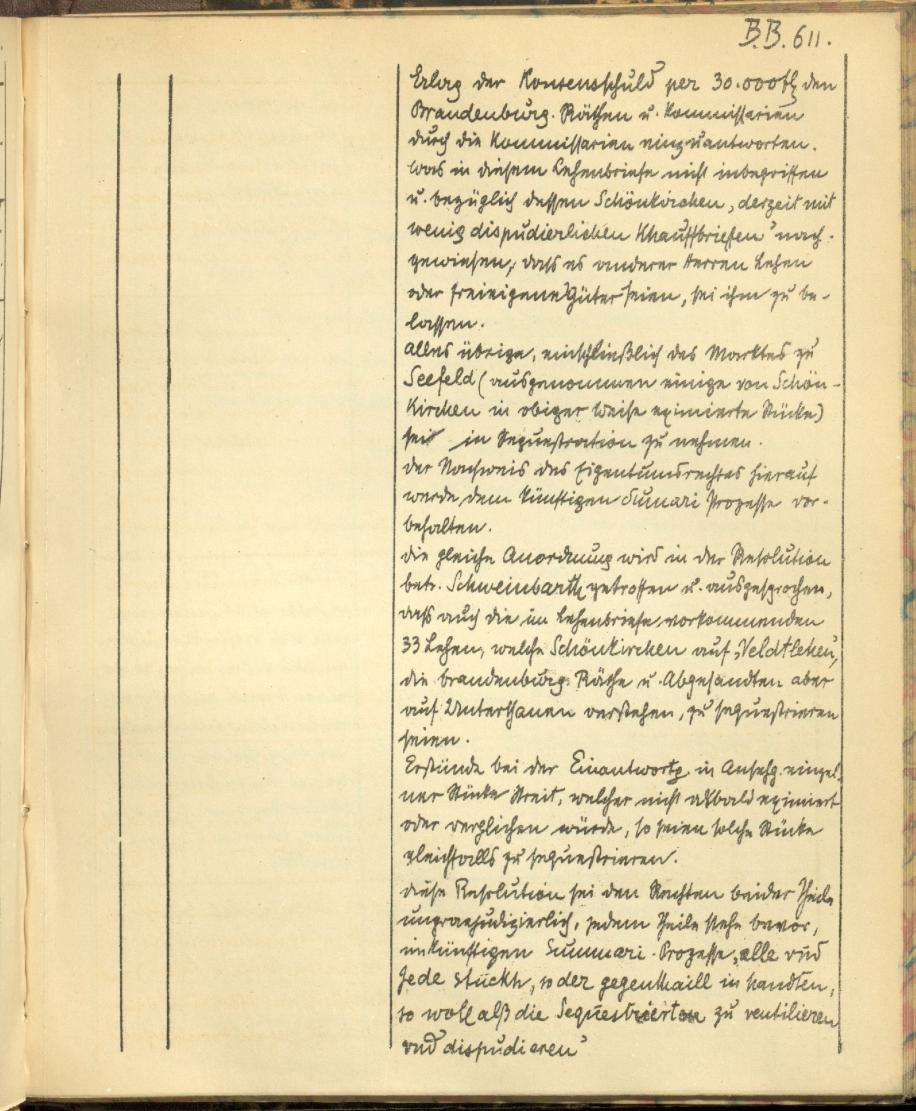 B.B. 611.
Erlag der Konsensschuld per 30.000 fl. den
Brandenburg. Räthen u. Kommissarien
durch die Kommissarien einzuantworten.
Was in diesem Lehenbriefe nicht inbegriffen
u. bezüglich dessen Schönkirchen, derzeit mit
wenig dispudierlichen Khauffbrieffen" nach-
gewiesen, dass es anderer Herren Lehen
oder freieigene Güter seien, sei ihm zu be-
lassen.
Alles übrige, einschließlich des Marktes zu
Seefeld (ausgenommen einige von Schön-
kirchen in obiger Weise eximierte Stücke)
sei in Sequestration zu nehmen.
Der Nachweis des Eigentumsrechtes hierauf
werde dem künftigen Sumari Prozesse vor-
behalten.
Die gleiche Anordnung wird in der Resolution
betr. Schweinbarth getroffen u. ausgesprochen,
dass auch die im Lehenbriefe vorkommenden
33 Lehen, welche Schönkirchen auf "Veldtlehen",
die brandenburg. Räthe u. Abgesandten aber
auf Unterthanen verstehen, zu sequestrieren
seien.
Erstünde bei der Einantwortg. in Ansehg. einzel-
ner Stücke Streit, welcher nicht alsbald eximiert
oder verglichen würde, so seien solche Stücke
gleichfalls zu sequestrieren.
Diese Resolution sei den Rechten beider Theile
unpraejudizierlich, jedem Theile stehe bevor,
im künftigen Summari-Prozesse "alle vnd
Jede stückh, so der gegenthaill in handten,
so woll alß die Sequestrierten zu ventilieren
vnd dispudieren"